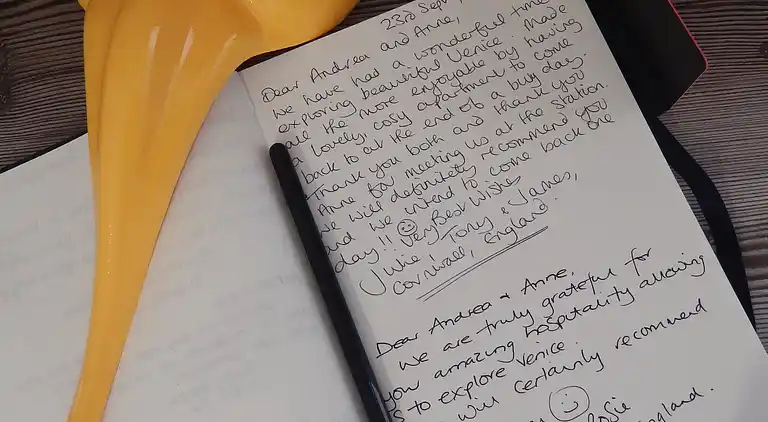 23rd Sept
Dear Andrea and Anne,
We have had a wonderful time
exploring beautiful Venice. Made
all the more enjoyable by having
a lovely, cosy apartment to come
back to at the end of a busy day.
Thank you both and thank you
Anne for meeting us at the station.
We will definitely recommend you
and we intend to come back one
day!! ☺ Very Best Wishes
Julie, Tony & James,
Cornwall, England.
Dear Andrea & Anne,
We are truly grateful for
your amazing hospitality allowing
us to explore Venice.
will certainly recommend
☺
Rosie
England.